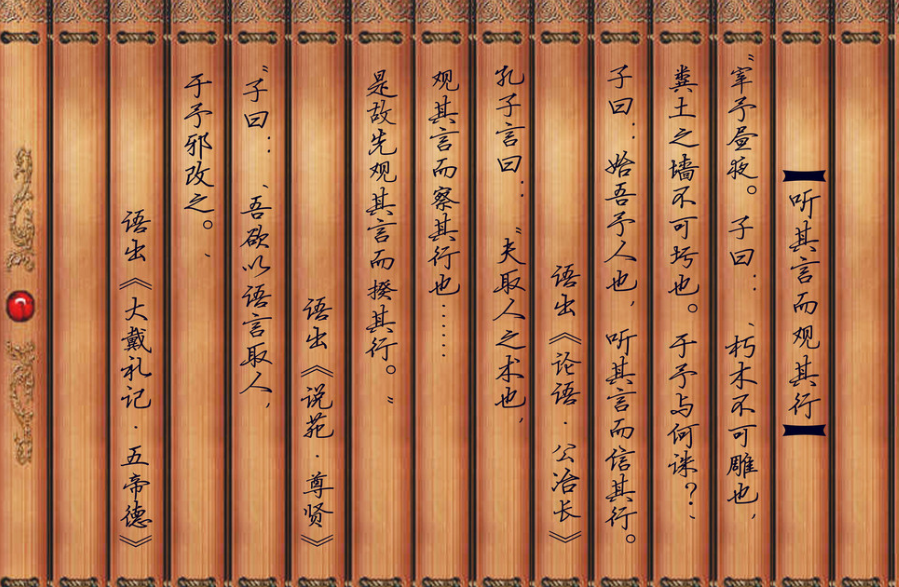 【听其言而观其行】
“宰予昼寝。子曰：‘朽木不可雕也，
粪土之墙不可圬也。于予与何诛？’
子曰：始吾予人也，听其言而信其行。
语出《论语·公冶长》
孔子言曰：“夫取人之术也，
观其言而察其行也……
是故先观其言而揆其行。”
语出《说苑·尊贤》
“子曰：‘吾欲以语言取人，
于予邪改之。’
语出《大戴礼记·五帝德》